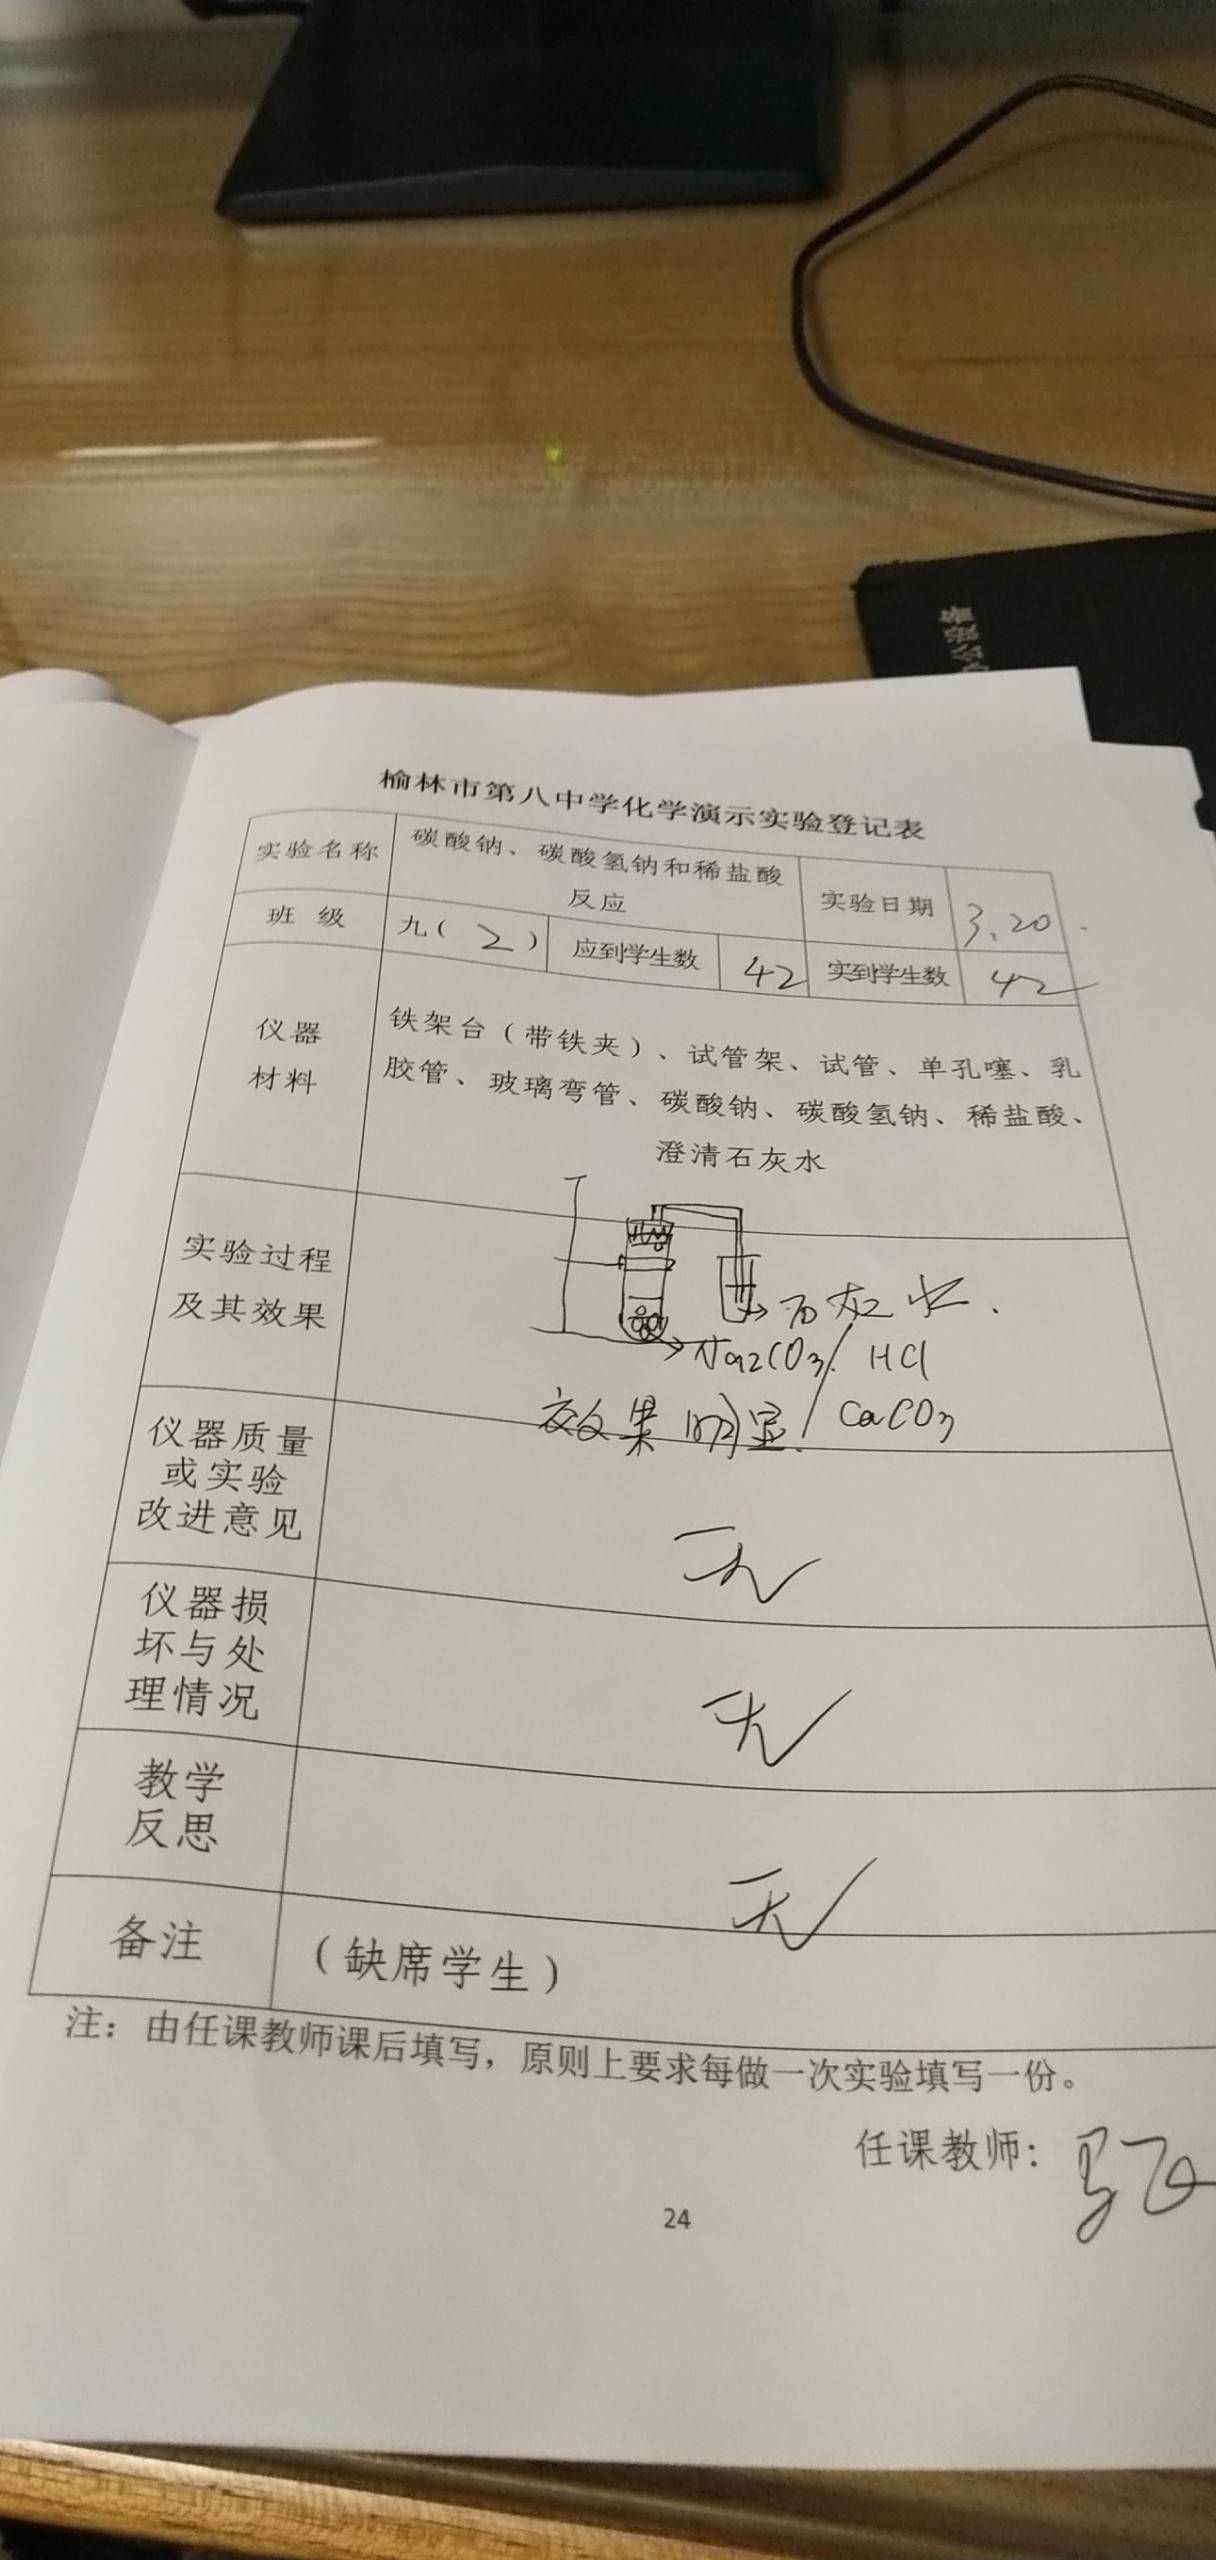 办公设备
榆林市第八中学化学演示实验登记表
实验名称 碳酸钠、碳酸氢钠和稀盐酸
反应 实验日期 3.20
班 级 九( 2 ) 应到学生数 42 实到学生数 42
仪器
材料
铁架台(带铁夹)、试管架、试管、单孔噻、乳
胶管、玻璃弯管、碳酸钠、碳酸氢钠、稀盐酸、
澄清石灰水
实验过程
及其效果
石灰水.
Na2CO3. HCl
效果明显. CaCO3
仪器质量
或实验
改进意见
无
仪器损
坏与处
理情况
无
教学
反思
无
备注 (缺席学生)
注：由任课教师课后填写，原则上要求每做一次实验填写一份。
任课教师：
24